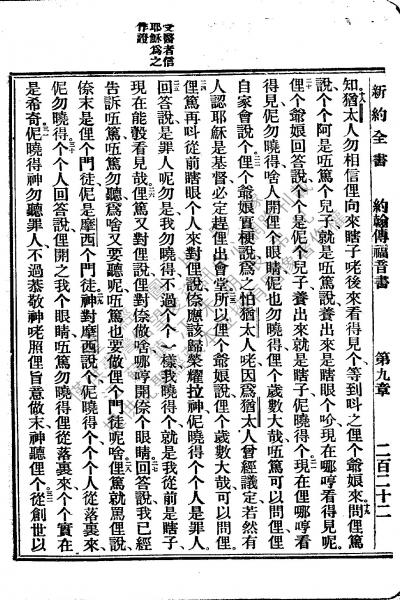 新約全書 約翰傳福音書 第九章 二百二十二
受醫者信
耶穌爲之
作證
知猶太人勿相信俚向來瞎子咾後來看得見個等到呌之俚個爺娘來問俚篤
說個個阿是唔篤個兒子就是唔篤說養出來是瞎眼個吤現在哪哼看得見呢
俚個爺娘回答說個個是伲個兒子養出來就是瞎子伲曉得個現在俚哪哼看
得見伲勿曉得啥人開俚個眼睛伲也勿曉得俚個歲數大哉唔篤可以問俚俚
自家會說個俚個爺娘實梗說爲之怕猶太人咾因爲猶太人曾經議定若然有
人認耶穌是基督必定趕俚出會堂所以俚個爺娘說俚個歲數大哉可以問俚
俚篤再呌從前瞎眼個人來對俚說倷應該歸榮耀拉神伲曉得個個人是罪人
回答說是罪人呢勿是我勿曉得不過個個一樣我曉得個就是我從前是瞎子
現在能彀看見哉俚篤又對俚說俚對倷做啥哪哼開倷個眼睛回答說我已經
告訴唔篤唔篤勿聽爲啥又要聽呢唔篤也要做俚個門徒呢啥俚篤就罵俚說
倷末是俚個門徒伲是摩西個門徒神對摩西說伲曉得個個個人從落裏來
伲勿曉得個個人回答說俚開之我個眼睛唔篤勿曉得俚從落裏來個個實在
是希奇伲曉得神勿聽罪人不過恭敬神咾照俚旨意做末神聽俚個從創世以